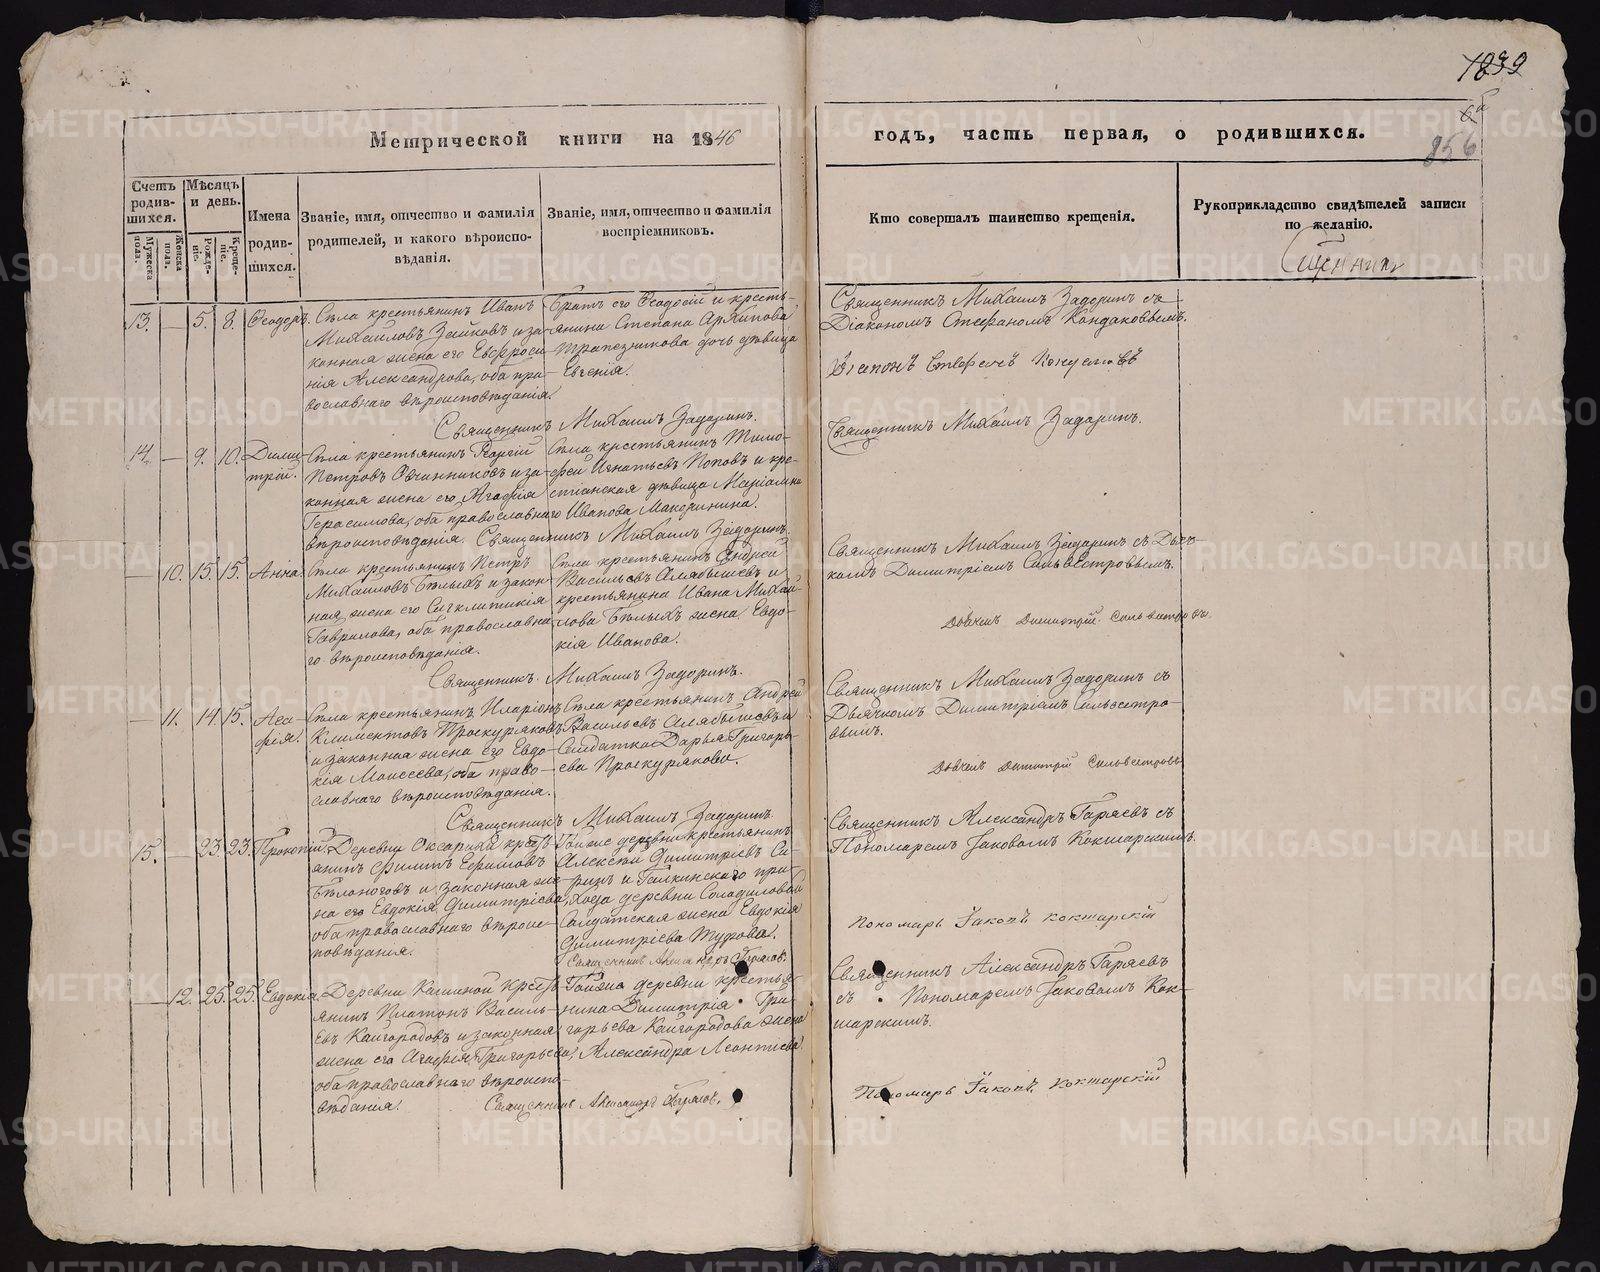 1839
6a
856
Метрической книги на 1846
годъ, часть первая, о родившихся.
Счетъ родившихся.
Мужеска пола.
Женска пола.
Мѣсяцъ и день.
Рожденіе.
Крещеніе.
Имена родившихся.
Званіе, имя, отчество и фамилія
родителей, и какого вѣроиспо-
вѣданія.
Званіе, имя, отчество и фамилія
воспріемниковъ.
Кто совершалъ таинство крещенія.
Рукоприкладство свидѣтелей записи
по желанію.
13. — 5. 8. Ѳеодоръ.
Села крестьянинъ Иванъ
Михайловъ Зайковъ и за-
конная жена его Евфроси-
нія Александрова, оба пра-
вославнаго вѣроисповѣданія.
Братъ его Ѳеодосій и кресть-
янина Стефана Архипова
Трапезникова дочь дѣвица
Евгенія.
Священникъ Михаилъ Задоринъ.
Священникъ Михаилъ Задоринъ съ
Діакономъ Стефаномъ Кондаковымъ.
Діаконъ Стефанъ
14. — 9. 10. Дими-
трій.
Села крестьянинъ Георгій
Петровъ Овчинниковъ и за-
конная жена его Агафія
Герасимова, оба православнаго
вѣроисповѣданія.
Села крестьянинъ Тимо-
фей Игнатьевъ Поповъ и кре-
стьянская дѣвица Маріамна
Иванова Макоринина.
Священникъ Михаилъ Задоринъ.
Священникъ Михаилъ Задоринъ.
— 10. 15. 15. Анна.
Села крестьянинъ Петръ
Михайловъ Бѣлыхъ и закон-
ная жена его Сигклитикія
Гаврилова, оба православна-
го вѣроисповѣданія.
Села крестьянинъ Андрей
Васильевъ Алябышевъ и
крестьянина Ивана Михай-
лова Бѣлыхъ жена Евдо-
кія Иванова.
Священникъ Михаилъ Задоринъ.
Священникъ Михаилъ Задоринъ съ Дьяч-
комъ Димитріемъ Сильвестровымъ.
Дьячекъ Димитрій Сильвестровъ.
— 11. 14. 15. Ага-
фія.
Села крестьянинъ Иларіонъ
Климентовъ Проскуряковъ
и законная жена его Евдо-
кія Моисеева, оба право-
славнаго вѣроисповѣданія.
Села крестьянинъ Андрей
Васильевъ Алябышевъ и
Солдатка Дарья Григорь-
ева Проскурякова.
Священникъ Михаилъ Задоринъ.
Священникъ Михаилъ Задоринъ съ
Дьячкомъ Димитріемъ Сильвестро-
вымъ.
Дьячекъ Димитрій Сильвестровъ
15. — 23. 23. Прокопій.
Деревни Оксариной кресть-
янинъ Филипъ Ефимовъ
Бѣлоноговъ и законная же-
на его Евдокія Димитріева,
оба православнаго вѣроис-
повѣданія.
Тойже деревни крестьянинъ
Алексѣй Димитріевъ Си-
и Галкинскаго при-
хода деревни Солодиловой
Солдатская жена Евдокія
Димитріева
Священникъ Александръ Гаряевъ.
Священникъ Александръ Гаряевъ съ
Пономаремъ Іаковомъ Кокшарскимъ.
Пономарь Іаковъ Кокшарскій
— 12. 25. 25. Евдокія.
Деревни Кашиной кресть-
янинъ Платонъ Василь-
евъ Кайгородовъ и законная
жена его Агафія Григорьева,
оба православнаго вѣроиспо-
вѣданія.
Тойже деревни крестья-
нина Димитрія Гри-
горьева Кайгородова жена
Александра Леонтьева.
Священникъ Александръ Гаряевъ.
Священникъ Александръ Гаряевъ
съ Пономаремъ Іаковомъ Кок-
шарскимъ.
Пономарь Іаковъ Кокшарскій
METRIKI.GASO-URAL.RU